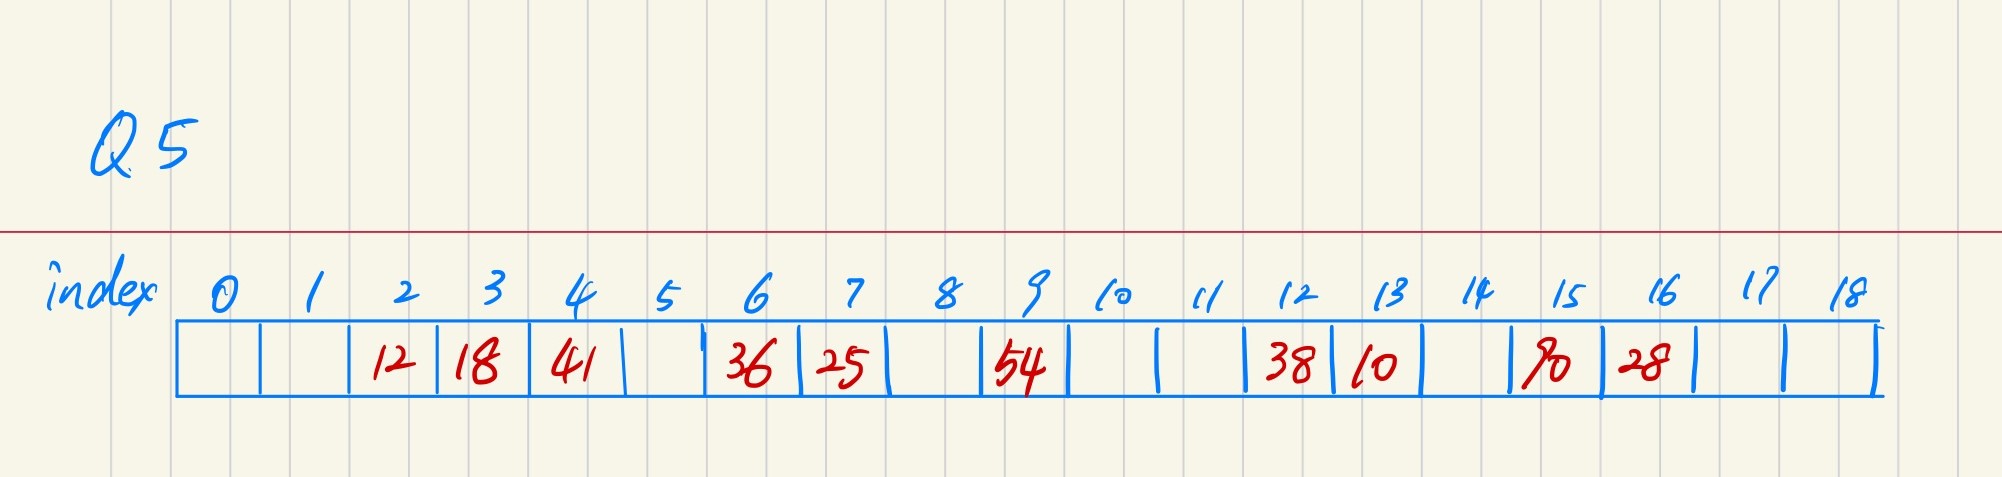 Q5
index 0 1 2 3 4 5 6 7 8 9 10 11 12 13 14 15 16 17 18
12 18 41 36 25 54 38 10 90 28